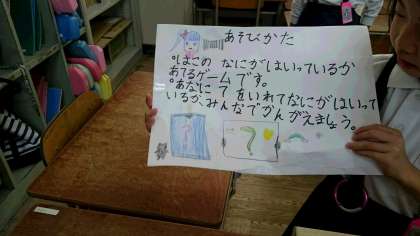 あそびかた
○はこの なにがはいっているか
あてるゲームです。
○あなに てをいれてなにがはいって
いるか、みんなでかんがえましょう。